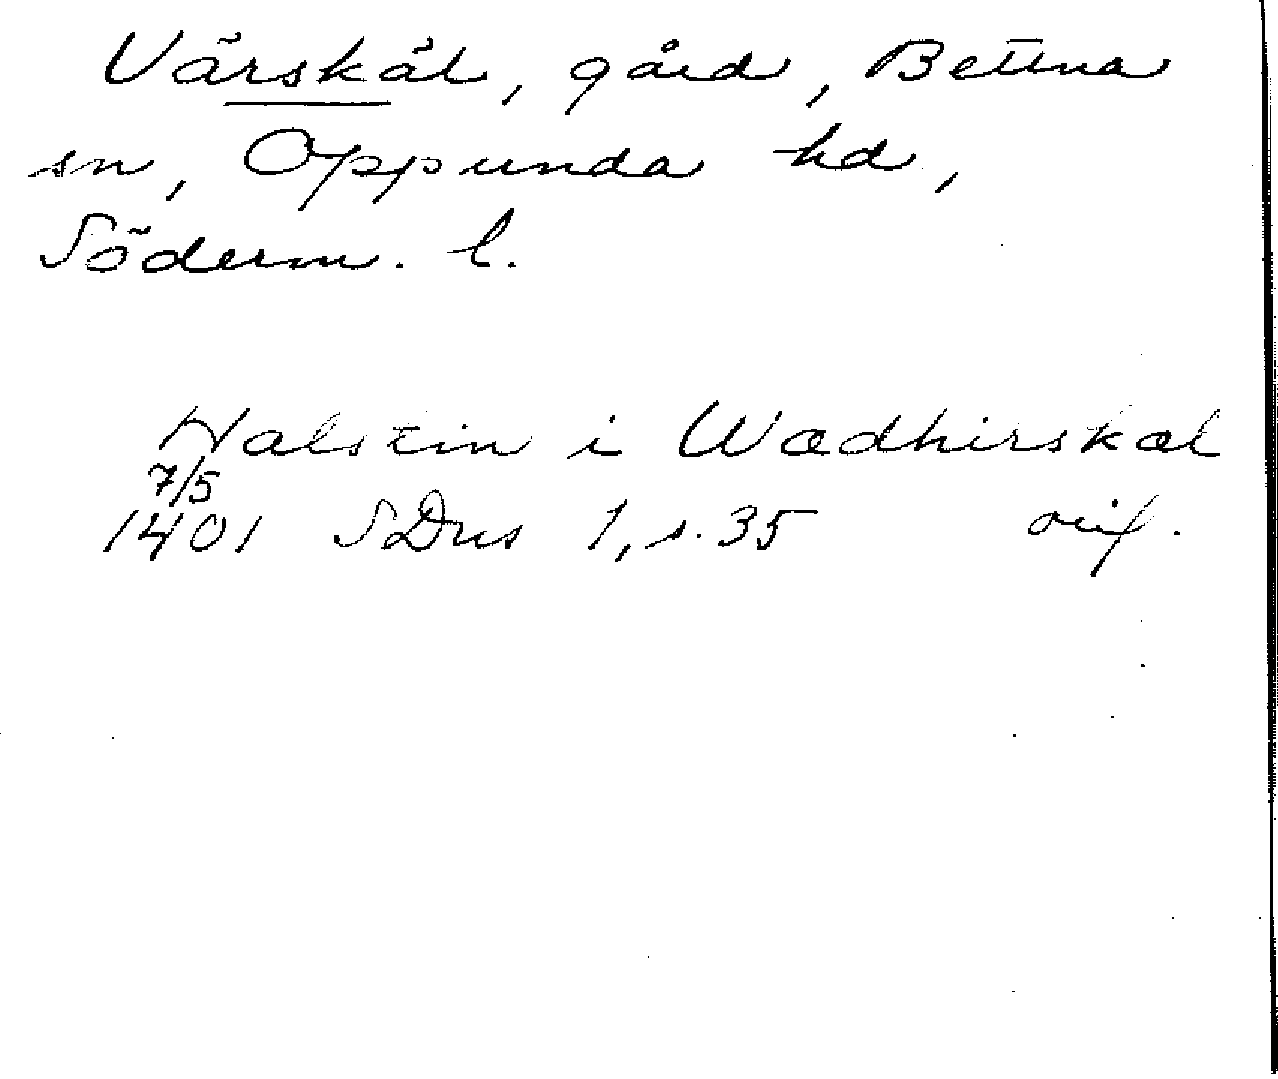 Värskäl, gård, Bettna
sn, Oppunda hd,
Söderm. l.
Halstin i Wædhirskæl
7/5
1401 SDns 1, s. 35